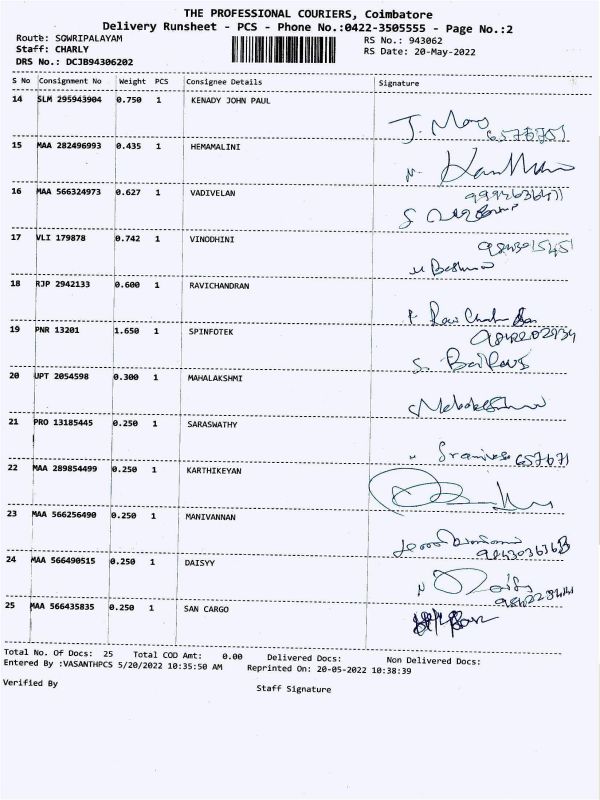 THE PROFESSIONAL COURIERS, Coimbatore
Delivery Runsheet - PCS - Phone No.:0422-3505555 - Page No.:2
Route: SOWRIPALAYAM RS No.: 943062
Staff: CHARLY RS Date: 20-May-2022
DRS No.: DCJB94306202
S No Consignment No Weight PCS Consignee Details Signature
14 SLM 295943904 0.750 1 KENADY JOHN PAUL
J. Mary
15 MAA 282496993 0.435 1 HEMAMALINI
16 MAA 566324973 0.627 1 VADIVELAN
17 VLI 179878 0.742 1 VINODHINI
18 RJP 2942133 0.600 1 RAVICHANDRAN
19 PNR 13201 1.650 1 SPINFOTEK
20 UPT 2054598 0.300 1 MAHALAKSHMI
21 PRO 13185445 0.250 1 SARASWATHY
22 MAA 289854499 0.250 1 KARTHIKEYAN
23 MAA 566256490 0.250 1 MANIVANNAN
24 MAA 566490515 0.250 1 DAISYY
25 MAA 566435835 0.250 1 SAN CARGO
Total No. Of Docs: 25 Total COD Amt: 0.00 Delivered Docs: Non Delivered Docs:
Entered By :VASANTHPCS 5/20/2022 10:35:50 AM Reprinted On: 20-05-2022 10:38:39
Verified By Staff Signature